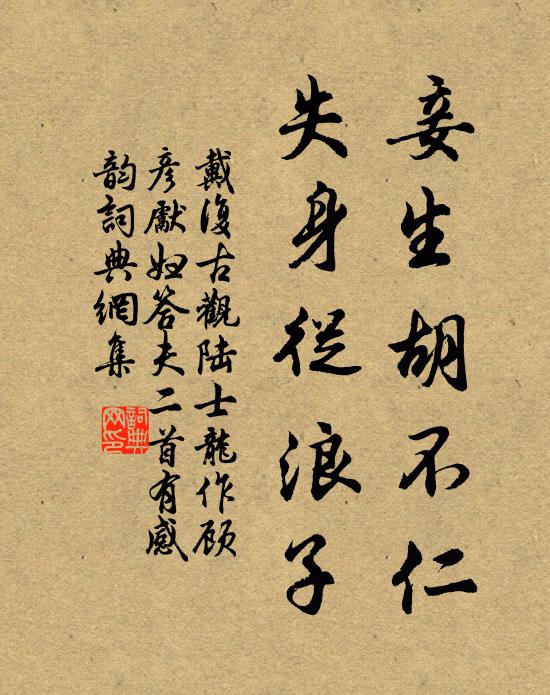 妾生胡不仁
失身從浪子
戴復古觀陆士龍作顾
彦獻妇答夫二首有感
韵詞典網集
詞典
网印